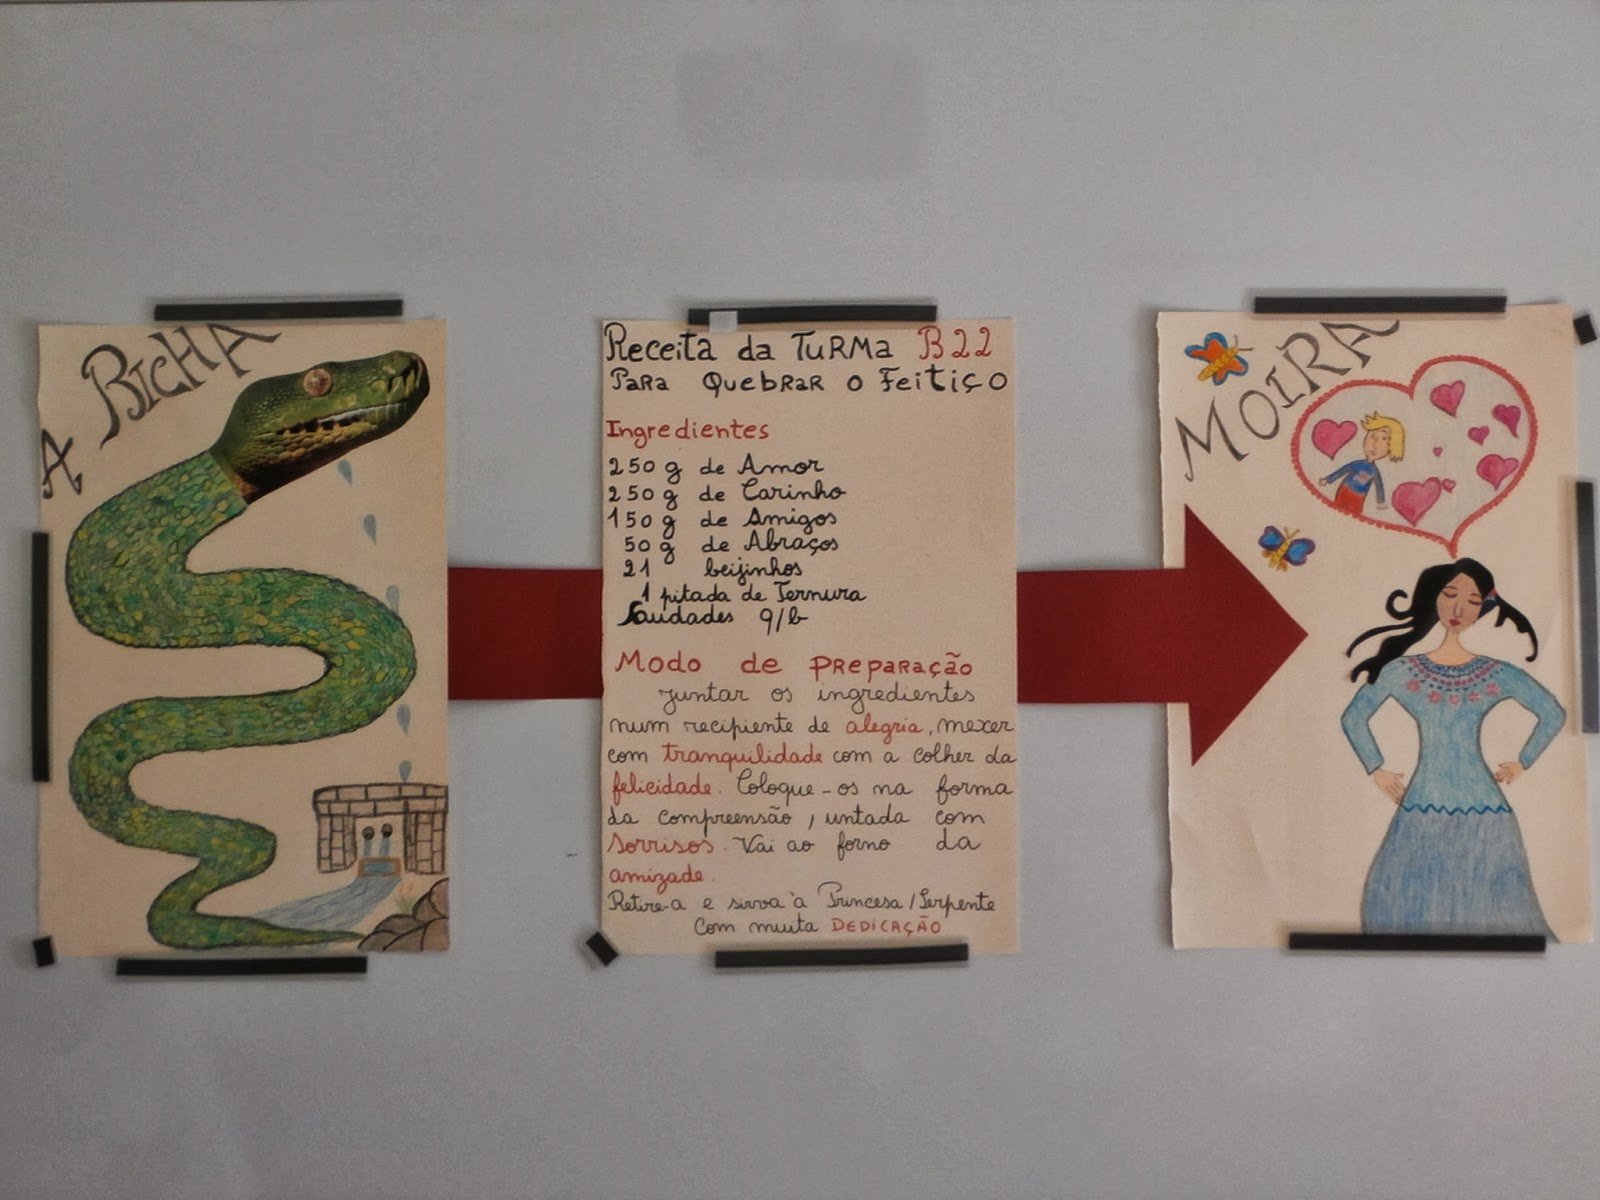 A BICHA
Receita da TuRMa B22
Para Quebrar o Feitiço
Ingredientes
250 g de Amor
250 g de Carinho
150 g de Amigos
50 g de Abraços
21 beijinhos
1 pitada de Ternura
Saudades q/b
Modo de preparação
Juntar os ingredientes
num recipiente de alegria, mexer
com tranquilidade com a colher da
felicidade. Coloque-os na forma
da compreensão, untada com
sorrisos. Vai ao forno da
amizade.
Retire-a e sirva à Princesa/Serpente
Com muita DEDICAÇÃO
MOIRA